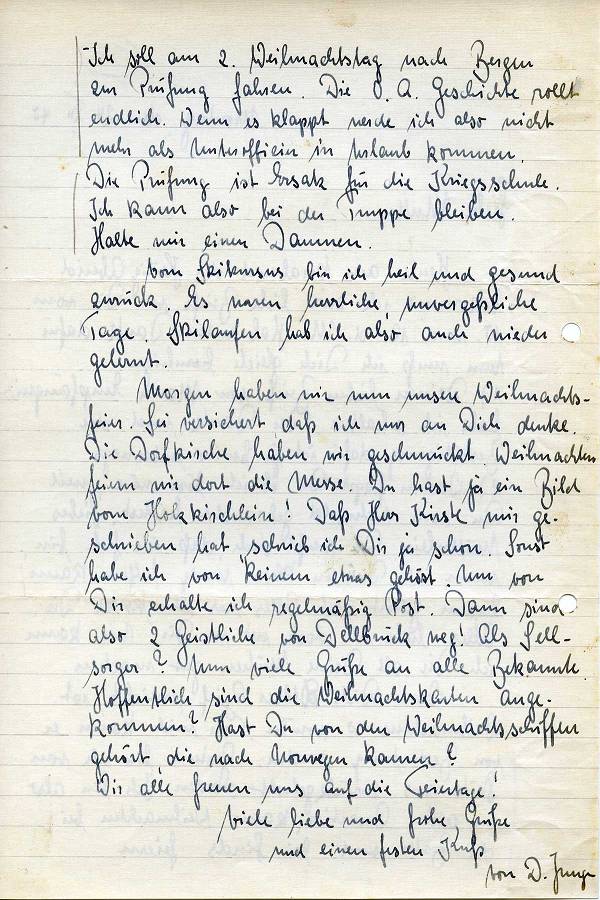 Ich soll am 2. Weihnachtstag nach Bergen
zur Prüfung fahren. Die O. A. Geschichte rollt
endlich. Wenn es klappt werde ich also nicht
mehr als Unteroffizier in Urlaub kommen.
Die Prüfung ist Ersatz für die Kriegsschule.
Ich kann also bei der Truppe bleiben.
Halte mir einen Daumen.
Vom Skikursus bin ich heil und gesund
zurück. Es waren herrliche, unvergeßliche
Tage. Skilaufen hab ich also auch wieder
gelernt.
Morgen haben wir nun unsere Weihnachts-
feier. Sei versichert daß ich nur an Dich denke.
Die Dorfkirche haben wir geschmückt. Weihnachten
feiern wir dort die Messe. Du hast ja ein Bild
vom Holzkirchlein! Daß Herr Kirste mir ge-
schrieben hat schrieb ich Dir ja schon. Sonst
habe ich von keinem etwas gehört. Nur von
Dir erhalte ich regelmäßig Post. Dann sind
also 2 Geistliche von Dellbrück weg! Als Seel-
sorger? Nun viele Grüße an alle Bekannte.
Hoffentlich sind die Weihnachtskarten ange-
kommen? Hast Du von den Weihnachtsschiffen
gehört, die nach Norwegen kamen?
Wir alle freuen uns auf die Feiertage!
Viele liebe und frohe Grüße
und einen festen Kuß
von D. Junge